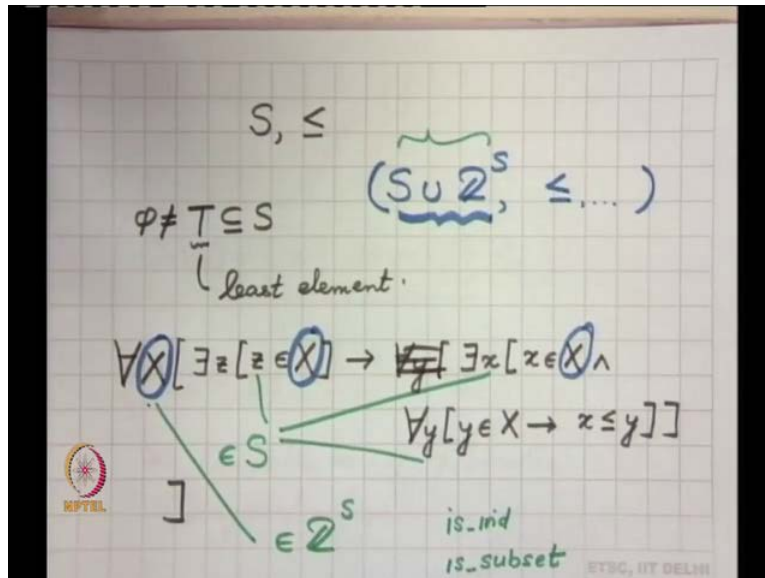 S, ≤
(S ∪ 2^S, ≤, ... )
φ ≠ T ⊆ S
least element.
∀X[∃z[z ∈ X] → ∃x[x ∈ X ∧
∀y[y ∈ X → x ≤ y]]
∈ S
]
∈ 2^S
is_ind
is_subset
NPTEL
ETSC, IIT DELHI